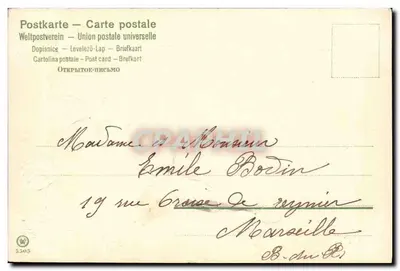 Postkarte — Carte postale
Weltpostverein — Union postale universelle
Dopisnice — Levelező-Lap — Briefkaart
Cartolina postale — Post card — Brefkort
Открытое-письмо
Madame et Monsieur
Emile Bodin
19 rue Croise de reynier
Marseille
B. du R.